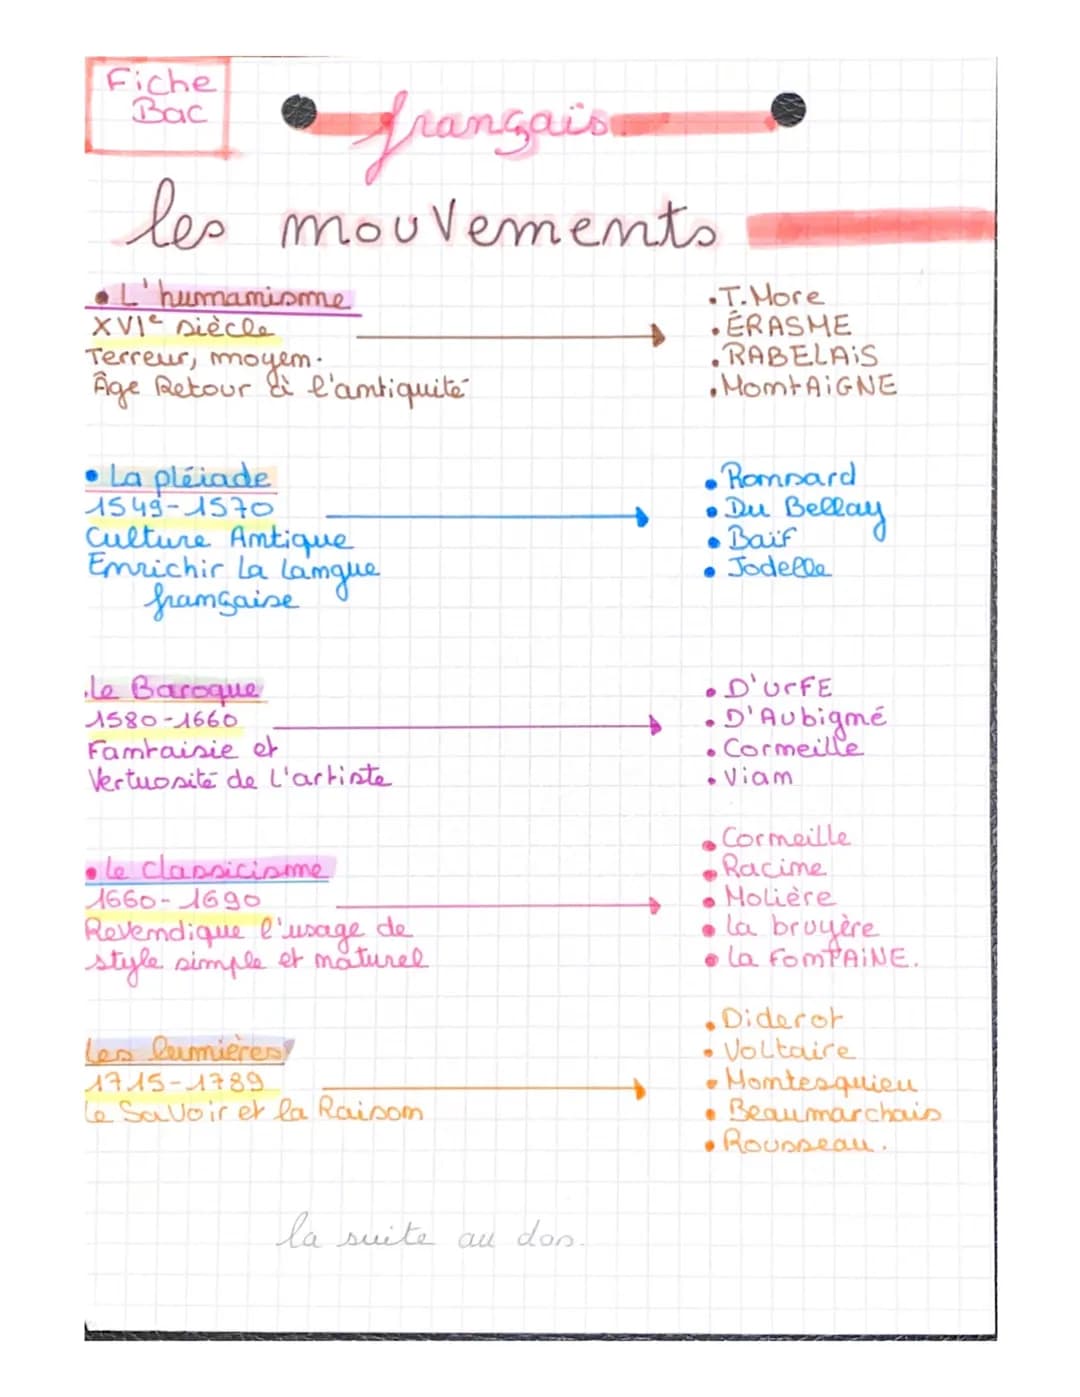 Fiche
Bac
français
les mouvements
• L'humanisme
XVIe siècle
Terreur, moyen.
Âge Retour à l'antiquité
• T. More
• ÉRASME
• RABELAiS
• MontAiGNE
• La pléiade
1549-1570
Culture Antique
Enrichir la langue
française
• Ronsard
• Du Bellay
• Baïf
• Jodelle
• le Baroque
1580-1660
Fantaisie et
Vertuosité de l'artiste
• D'UrFE
• D'Aubigné
• Corneille
• Vian
• le classicisme
1660-1690
Revendique l'usage de
style simple et naturel
• Corneille
• Racine
• Molière
• la bruyère
• la FonTAiNE.
les lumières
1715-1789
le Savoir et la Raison
• Diderot
• Voltaire
• Montesquieu
• Beaumarchais
• Rousseau.
la suite au dos.